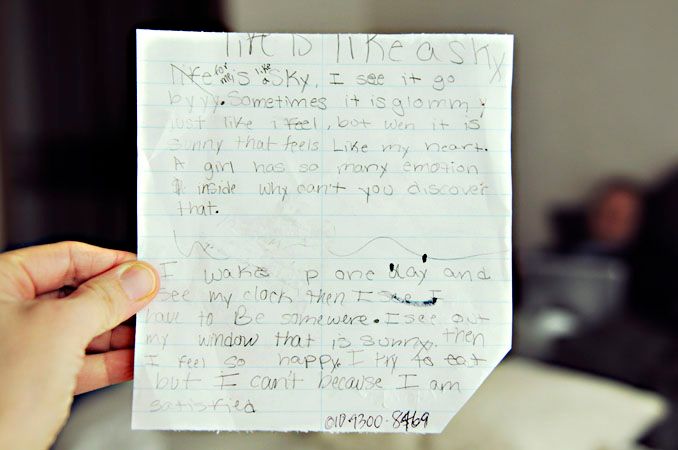 life is like a sky
life for me is like a sky, I see it go
byyy. Sometimes it is glommy
just like i feel, bot wen it is
sunny that feels like my heart.
A girl has so many emotion
inside why can't you discover
that.
I wake p one day and
see my clock then I see I
have to Be somewere. I see out
my window that is sunny. then
I feel so happy. I try to eat
but I can't because I am
satisfied
010-9300-8469